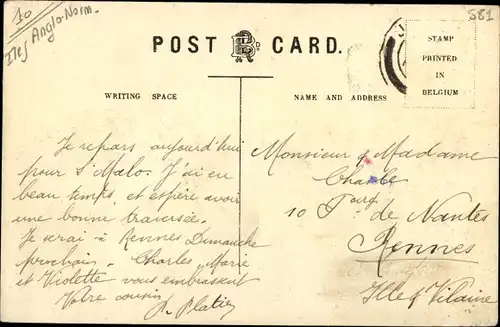 10
Iles Anglo-Norm.
581
POST CARD.
STAMP
PRINTED
IN
BELGIUM
WRITING SPACE
NAME AND ADDRESS
Je repars aujourd'hui
pour St Malo. J'ai eu
beau temps, et espère avoir
une bonne traversée.
Je serai à Rennes Dimanche
prochain. Charles, Marie
et Violette vous embrassent
Votre cousin
Monsieur & Madame
10 de Nantes
Rennes
Ille & Vilaine